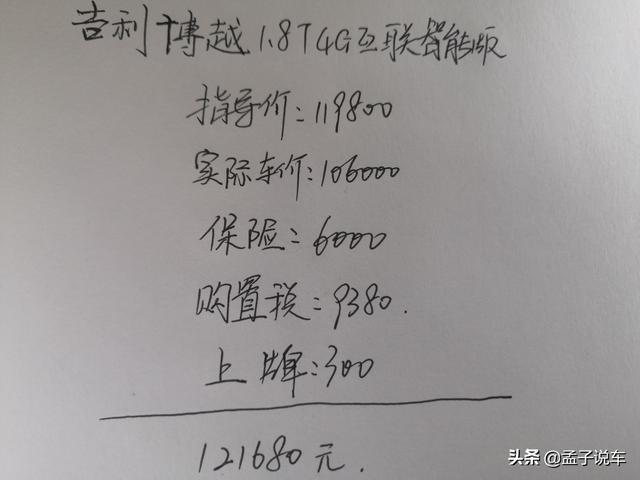 吉利博越1.8T4G互联智能版
指导价:119800
实际车价:106000
保险:6000
购置税:9380.
上牌:300
121680元.
头条 @孟子说车